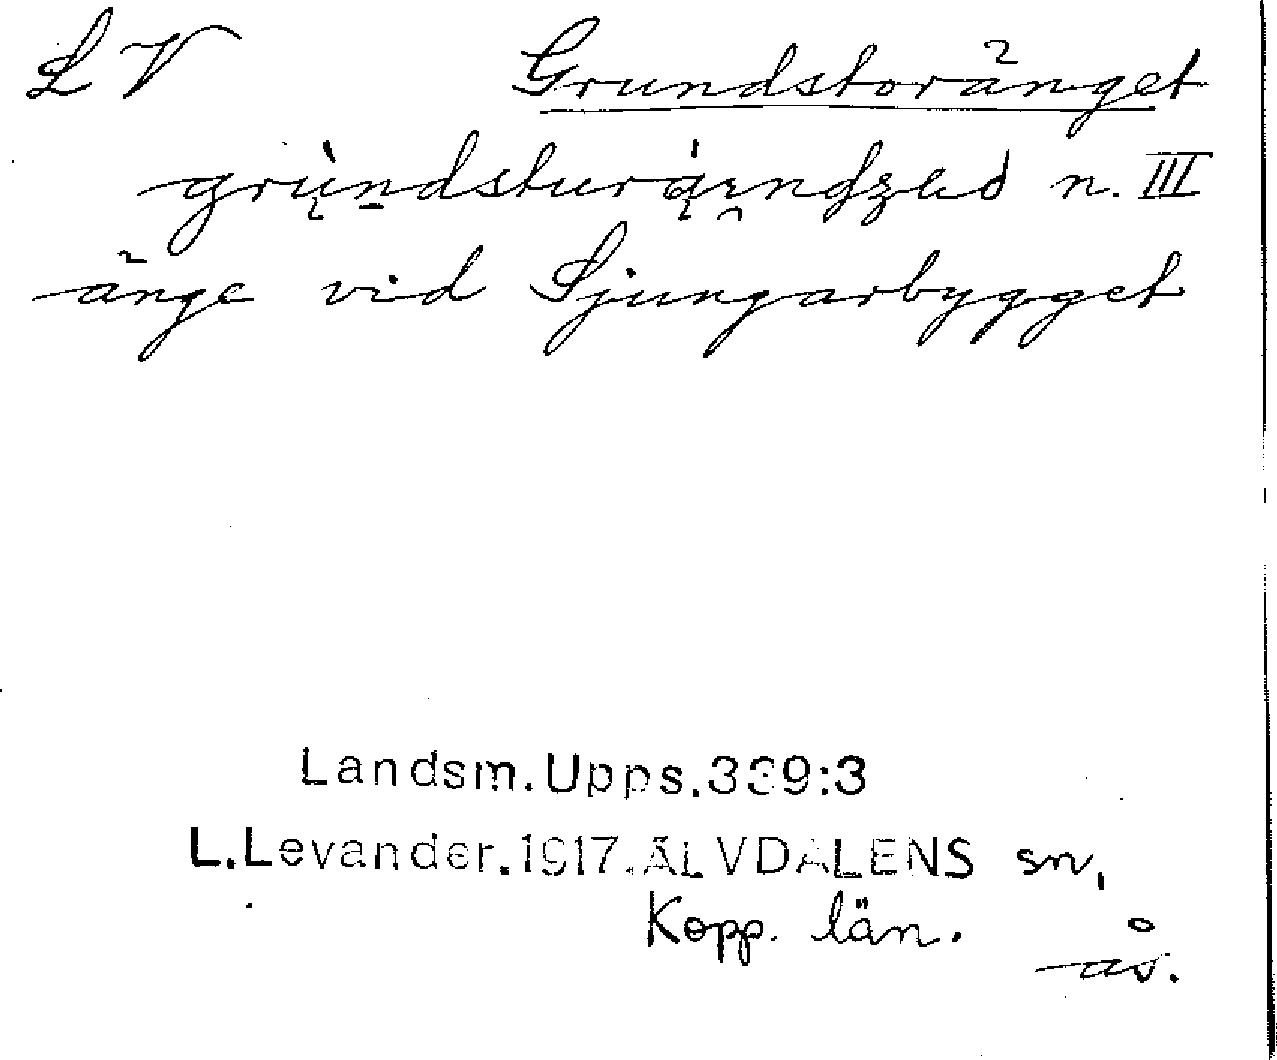 LV Grundstoränget
n. III
änge vid Sjungarbygget
Landsm.Upps.339:3
L.Levander.1917.ÄLVDALENS sn,
Kopp. län.
ås.